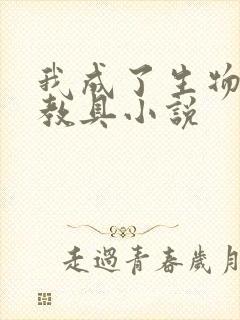 我成了生物
教具小説
走過青春歲月